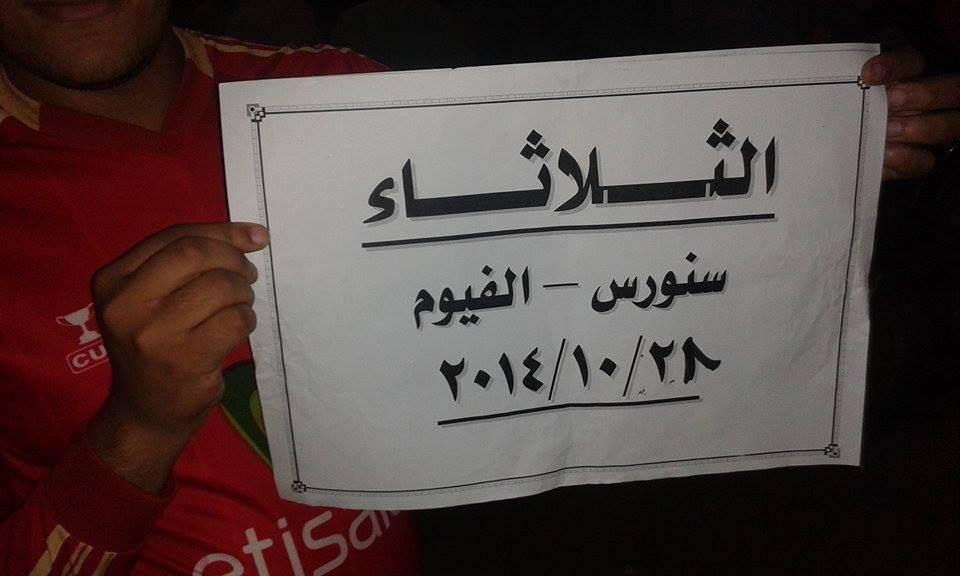 الثلاثاء
سنورس - الفيوم
٢٠١٤/١٠/٢٨
CU
etisa